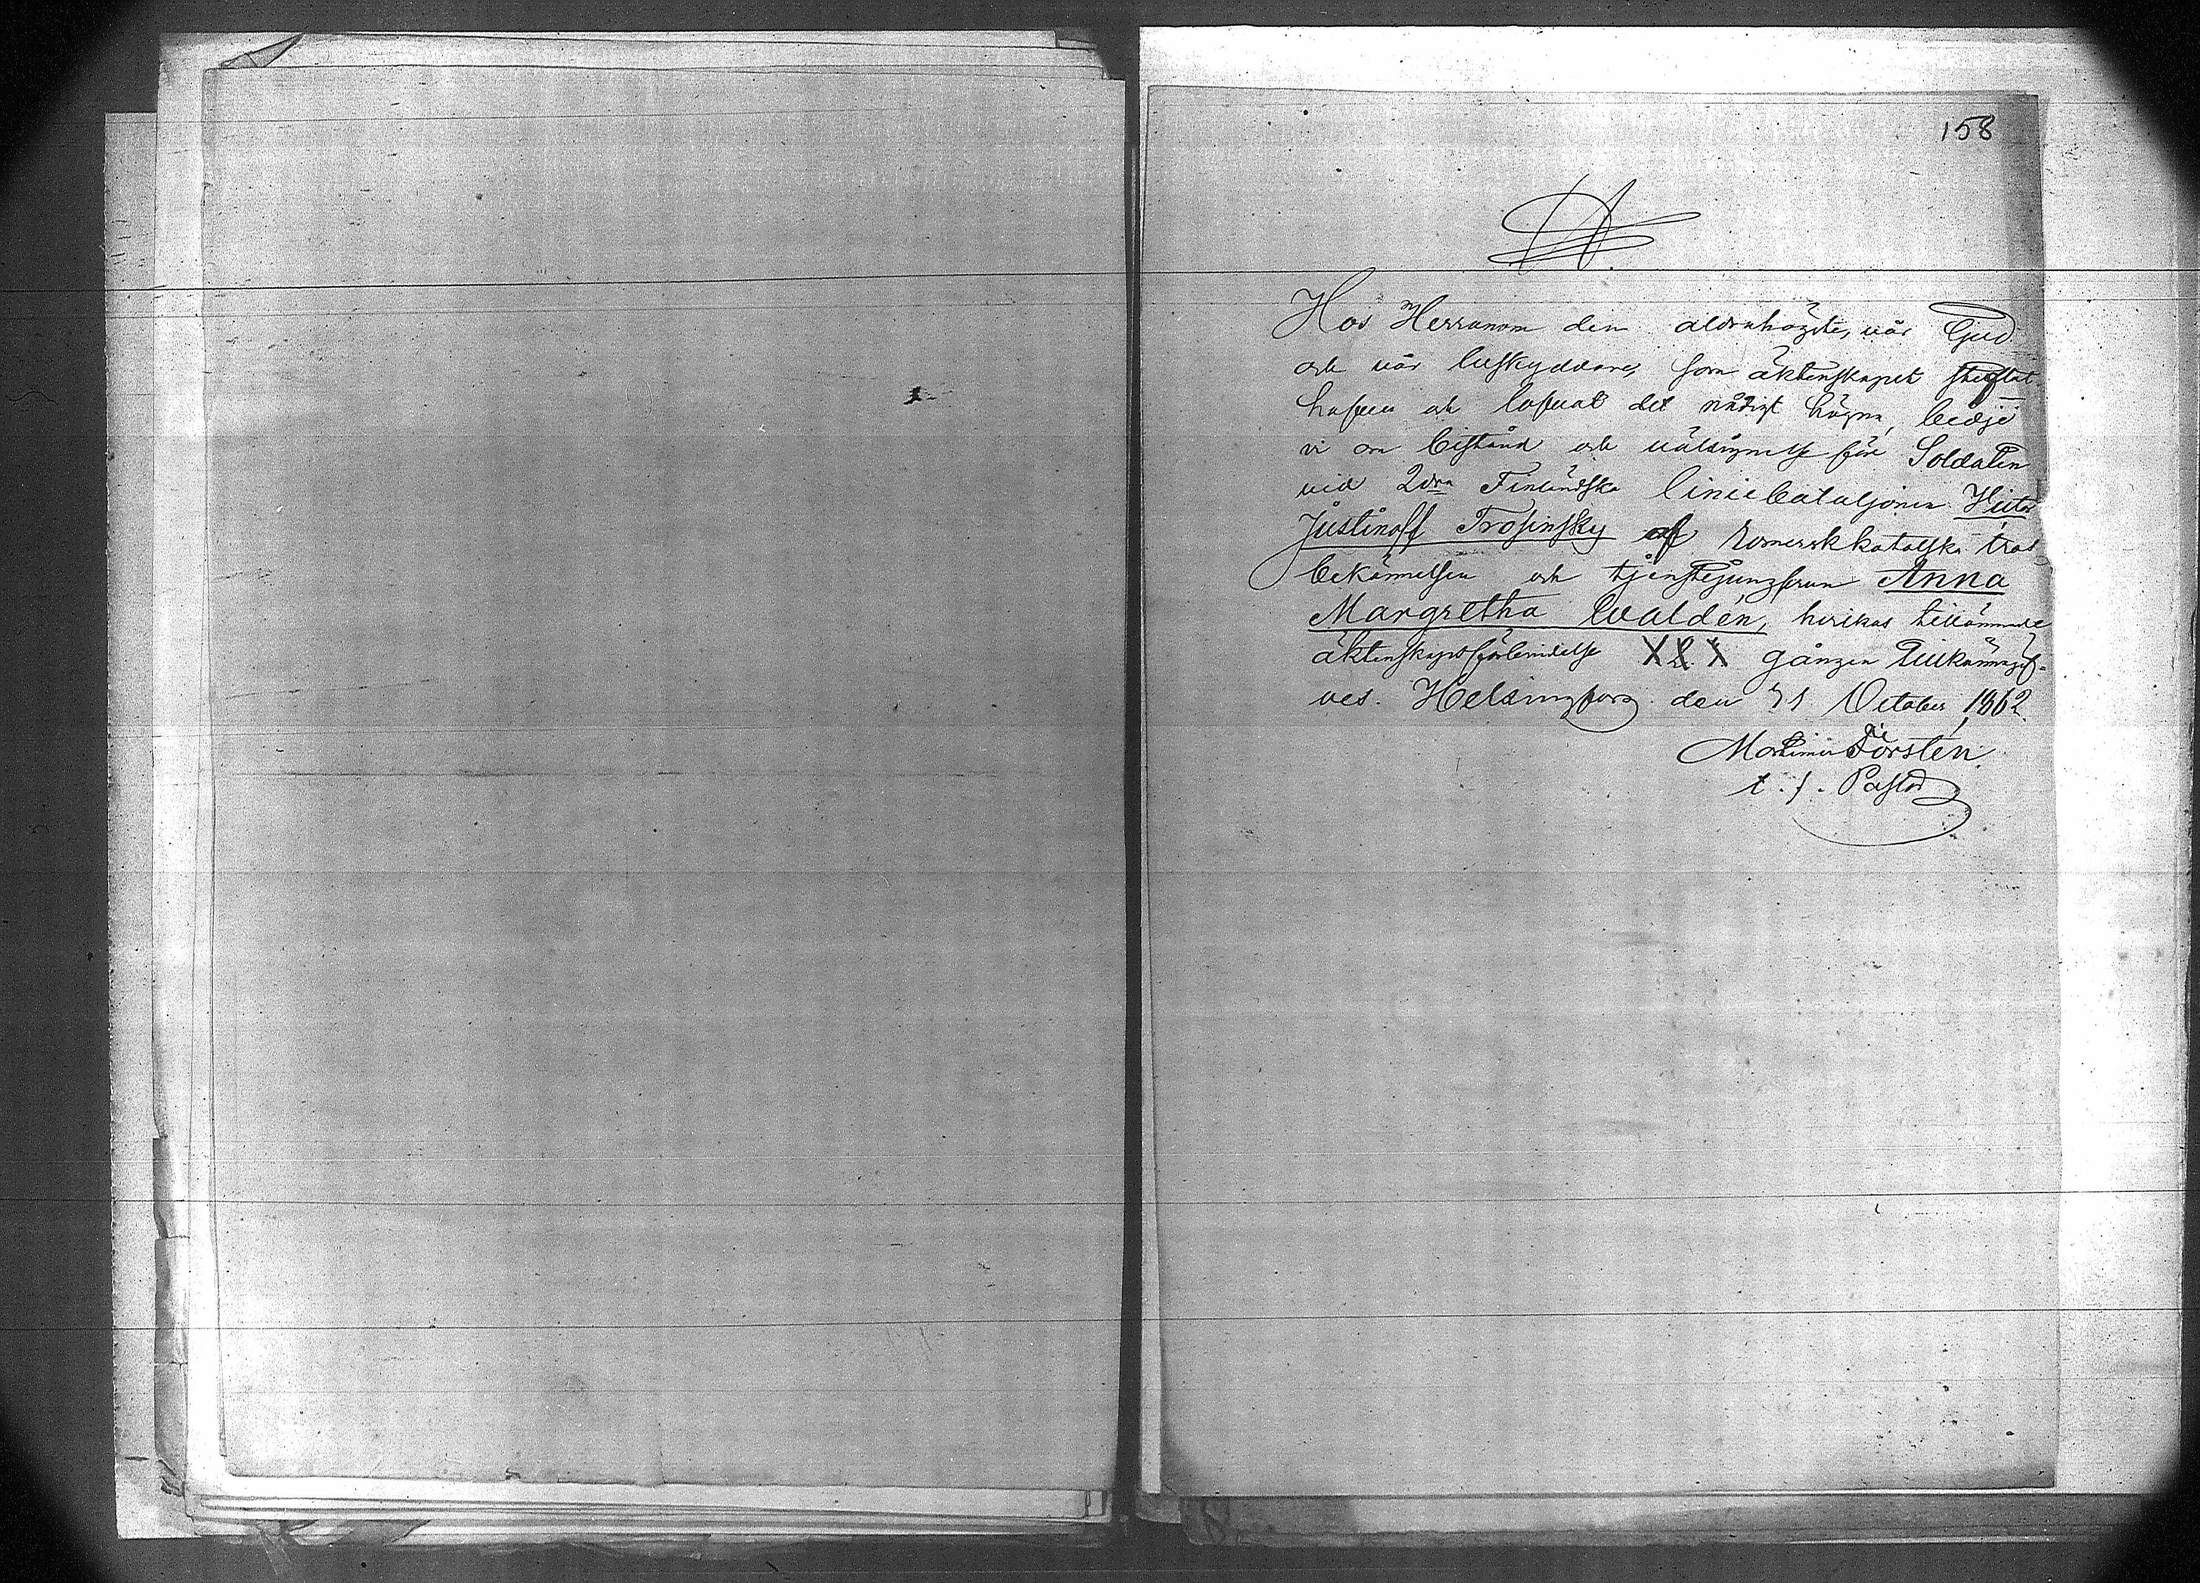 158
Hos Herranom den aldrahögste, vår Gud
och vår beskyddare, som äktenskapet stiftat
hafver och lofvat det nådigt hägna, bedje
vi om bistånd och välsignelse för Soldaten
vid 2dra Finländska liniebataljonen Victor
Justinoff Trosinsky af Romersk katolska tros
bekännelsen och tjenstejungfrun Anna
Margretha Waldén, hvilkas tillämnade
äktenskapsförbindelse X 2. X gången tillkännagif-
ves. Helsingfors den 31 October 1862.
Mortimer Forstén
t. f. Pastor